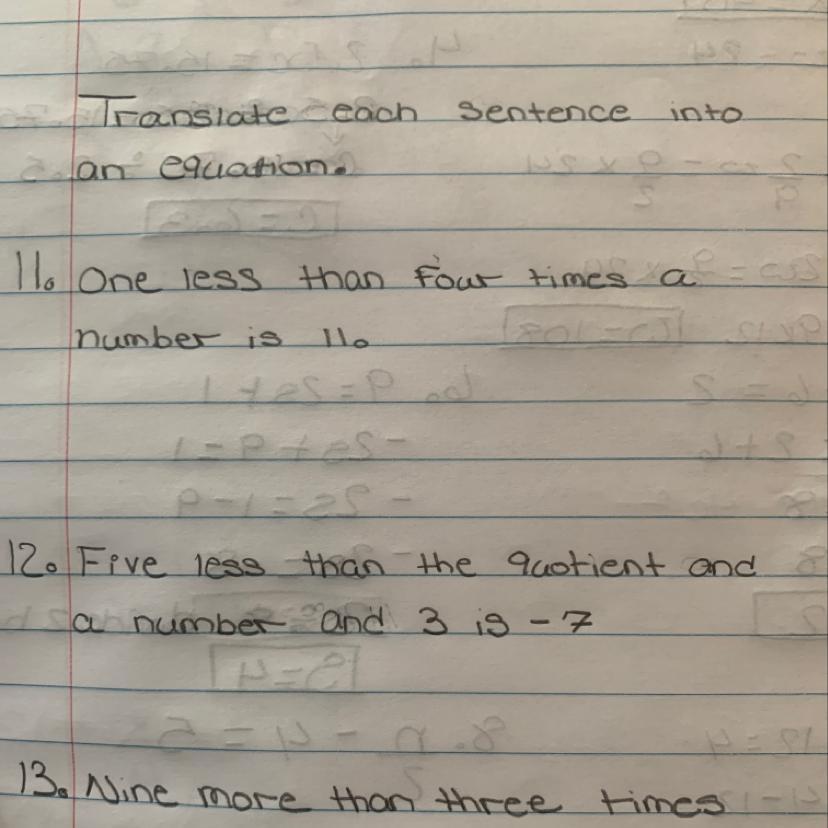 Translate each sentence into
an equation.
11. One less than four times a
number is 11.
12. Five less than the quotient and
a number and 3 is -7
13. Nine more than three times